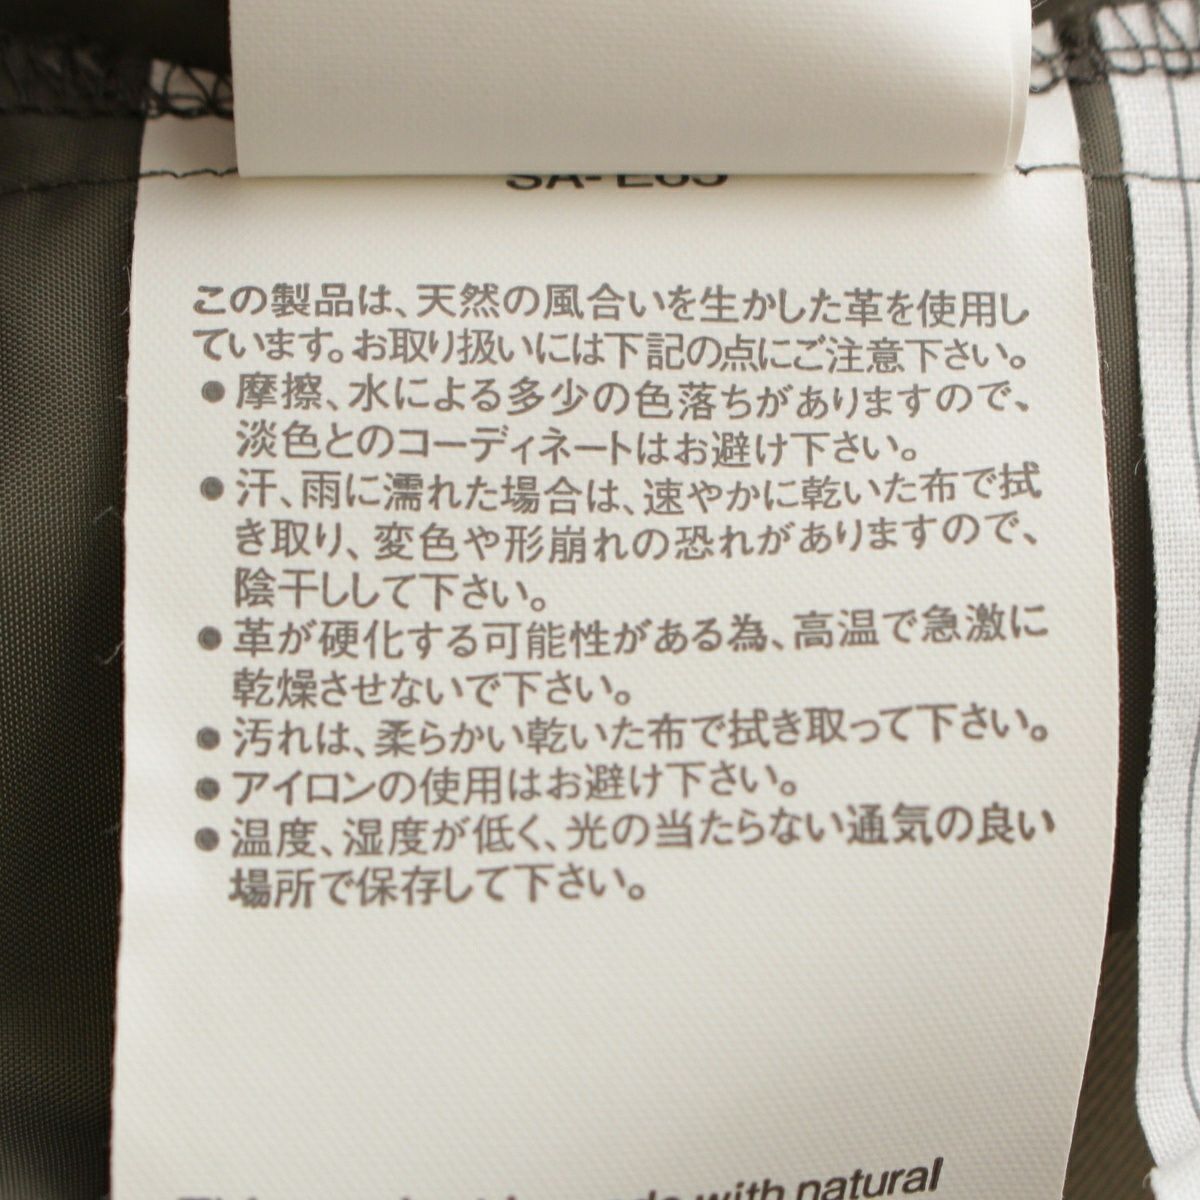 この製品は、天然の風合いを生かした革を使用し
ています。お取り扱いには下記の点にご注意下さい。
●摩擦、水による多少の色落ちがありますので、
淡色とのコーディネートはお避け下さい。
●汗、雨に濡れた場合は、速やかに乾いた布で拭
き取り、変色や形崩れの恐れがありますので、
陰干しして下さい。
●革が硬化する可能性がある為、高温で急激に
乾燥させないで下さい。
●汚れは、柔らかい乾いた布で拭き取って下さい。
●アイロンの使用はお避け下さい。
●温度、湿度が低く、光の当たらない通気の良い
場所で保存して下さい。
with natural